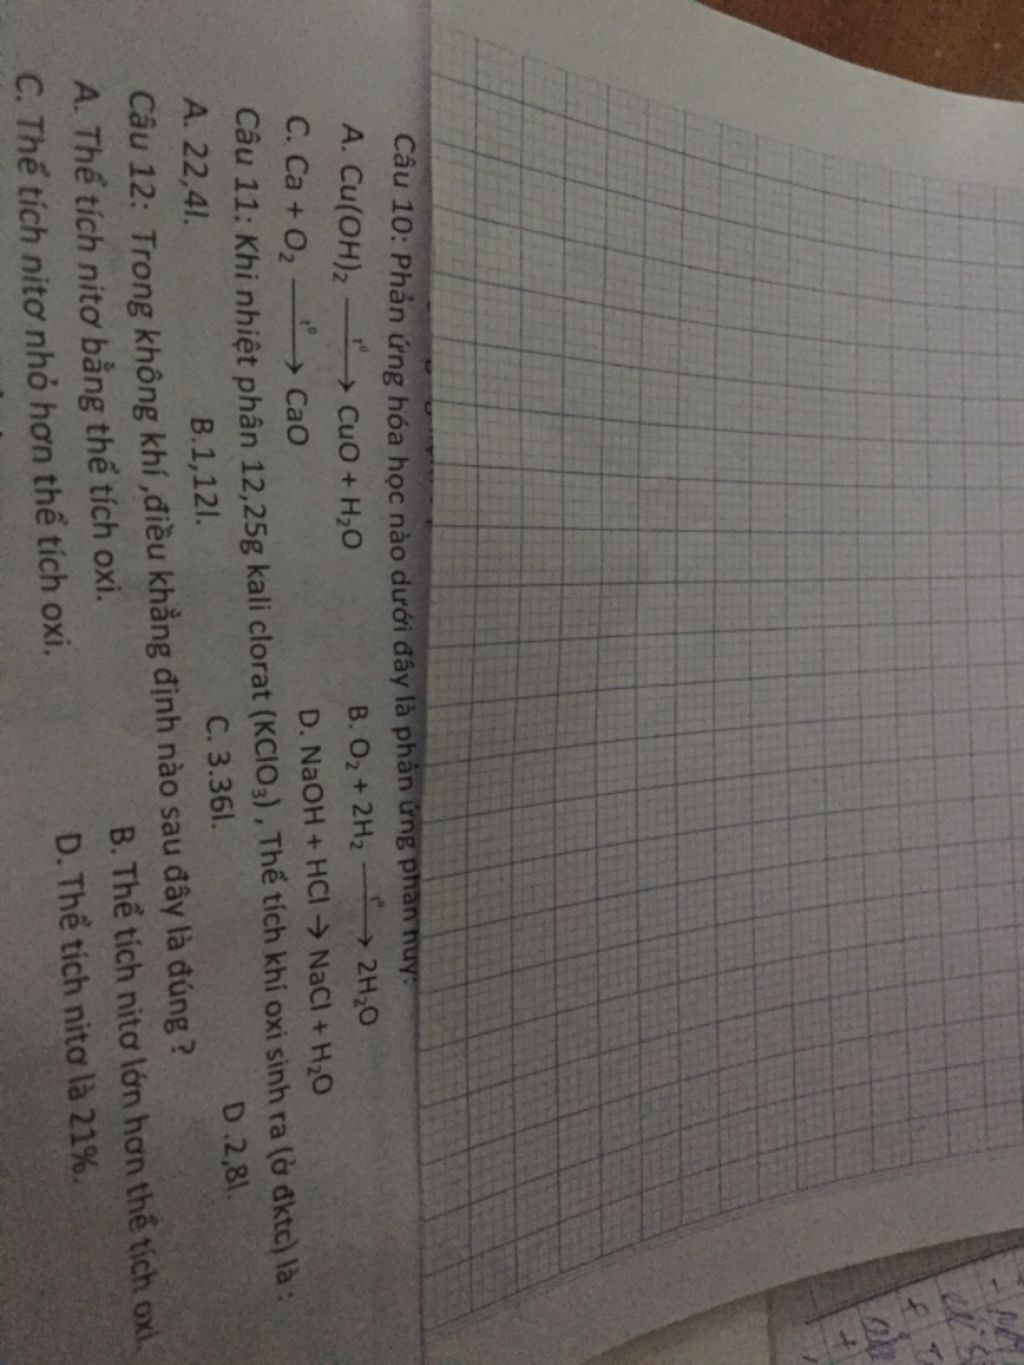 Câu 10: Phản ứng hóa học nào dưới đây là phản ứng phân hủy:
A. Cu(OH)₂ —t⁰→ CuO + H₂O B. O₂ + 2H₂ —t⁰→ 2H₂O
C. Ca + O₂ —t⁰→ CaO D. NaOH + HCl → NaCl + H₂O
Câu 11: Khi nhiệt phân 12,25g kali clorat (KClO₃) , Thể tích khí oxi sinh ra (ở đktc) là :
A. 22,4l. B.1,12l. C. 3.36l. D .2,8l.
Câu 12: Trong không khí ,điều khẳng định nào sau đây là đúng ?
A. Thể tích nitơ bằng thể tích oxi. B. Thể tích nitơ lớn hơn thể tích oxi.
C. Thể tích nitơ nhỏ hơn thể tích oxi. D. Thể tích nitơ là 21%.